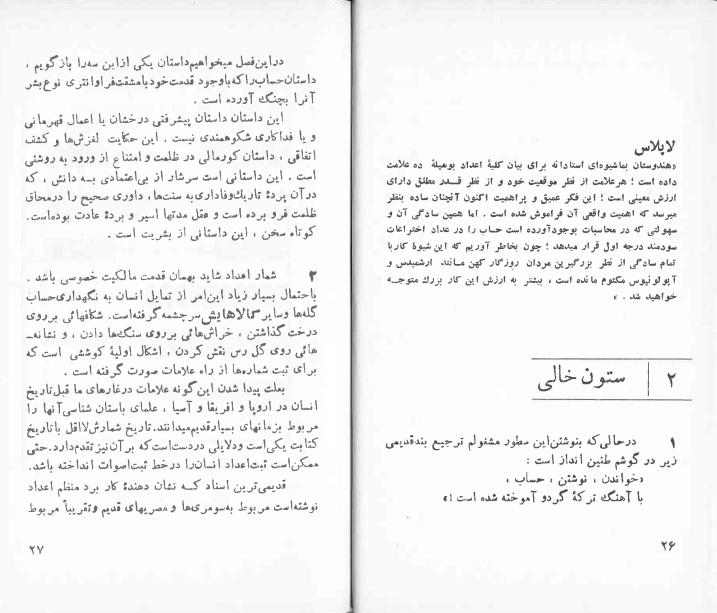 لاپلاس
«هندوستان بماشیوه‌ای استادانه برای بیان کلیهٔ اعداد بوسیلهٔ ده علامت
داده است ؛ هرعلامت از نظر موقعیت خود و از نظر قدر مطلق دارای
ارزش معینی است ؛ این فکر عمیق و پراهمیت اکنون آنچنان ساده بنظر
میرسد که اهمیت واقعی آن فراموش شده است . اما همین سادگی آن و
سهولتی که در محاسبات بوجودآورده است حساب را در عداد اختراعات
سودمند درجه اول قرار میدهد ؛ چون بخاطر آوریم که این شیوهٔ کاربا
تمام سادگی از نظر بزرگترین مردان روزگار کهن مانند ارشمیدس و
آپولونیوس مکتوم مانده است ، بیشتر به ارزش این کار بزرك متوجه
خواهید شد . »
۲ | ستون خالی
۱ درحالی‌که بنوشتن‌این سطور مشغولم ترجیع بندقدیمی
زیر در گوشم طنین انداز است :
«خواندن ، نوشتن ، حساب ،
با آهنگ ترکهٔ گردو آموخته شده است !»
۲۶
دراین‌فصل میخواهیم‌داستان یکی ازاین سه‌را بازگویم ،
داستان‌حساب‌را که باوجود قدمت خودبامشقت‌فراوانتری نوع‌بشر
آنرا بچنگ آورده است .
این داستان داستان پیشرفتی درخشان یا اعمال قهرمانی
و یا فداکاری شکوهمندی نیست . این حکایت لغزش‌ها و کشف
اتفاقی ، داستان کورمالی در ظلمت و امتناع از ورود به روشنی
است . این داستانی است سرشار از بی‌اعتمادی به دانش ، که
درآن پردهٔ تاریك‌وفاداری‌به سنت‌ها، داوری صحیح را درمحاق
ظلمت فرو برده است و عقل مدتها اسیر و بردهٔ عادت بوده‌است.
کوتاه سخن ، این داستانی از بشریت است .
۲ شمار اعداد شاید بهمان قدمت مالکیت خصوصی باشد .
باحتمال بسیار زیاد این‌امر از تمایل انسان به نگهداری‌حساب
گله‌ها وسایر کالاهایش سرچشمه گرفته‌است. شکافهائی برروی
درخت گذاشتن ، خراش‌هائی برروی سنگ‌ها دادن ، و نشانه‌ـ
هائی روی گل رس نقش کردن ، اشکال اولیهٔ کوششی است که
برای ثبت شماره‌ها از راه علامات صورت گرفته است .
بعلت پیدا شدن این‌گونه علامات درغارهای ما قبل‌تاریخ
انسان در اروپا و افریقا و آسیا ، علمای باستان شناسی‌آنها را
مربوط بزمانهای بسیارقدیم‌میدانند. تاریخ شمارش‌لااقل باتاریخ
کتابت یکی‌است ودلایلی دردست‌است‌که برآن‌نیزتقدم‌دارد. حتی
ممکن‌است ثبت‌اعداد انسان‌را درخط ثبت‌اصوات انداخته باشد.
قدیمی‌ترین اسناد که نشان دهندهٔ کار برد منظم اعداد
نوشته‌است مربوط به‌سومری‌ها و مصریهای قدیم وتقریباً مربوط
۲۷